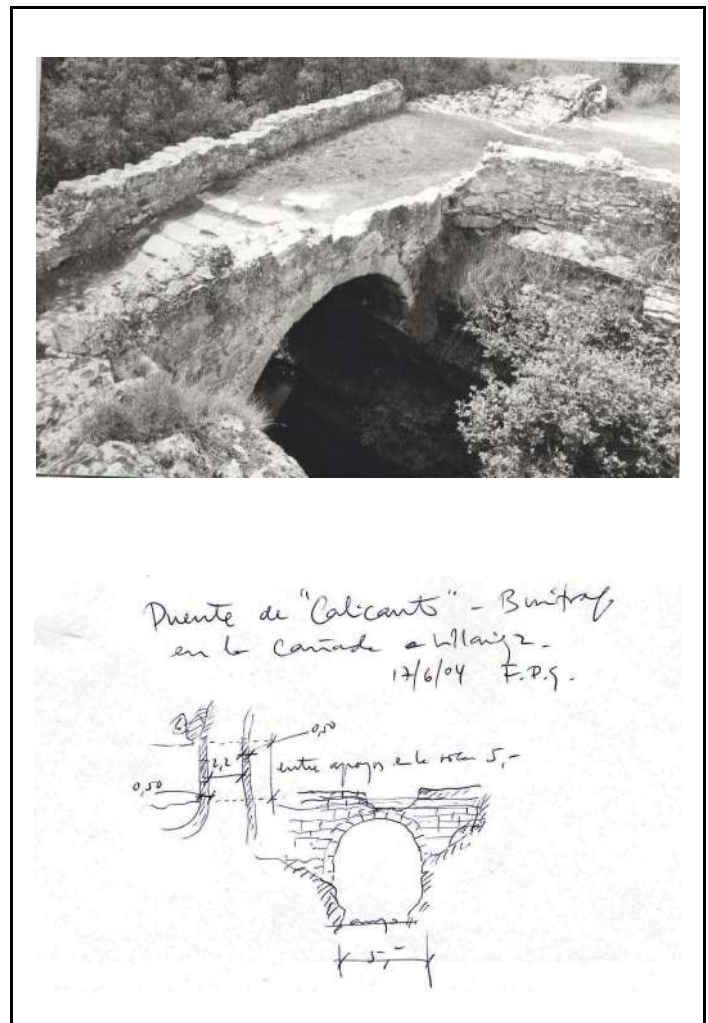 Puente de "Calicanto" - Buitrago
en la cañada a
17/6/04 F.P.G.
0,50
2,2
0,50
entre apoyos en la roca 5,-
5,-